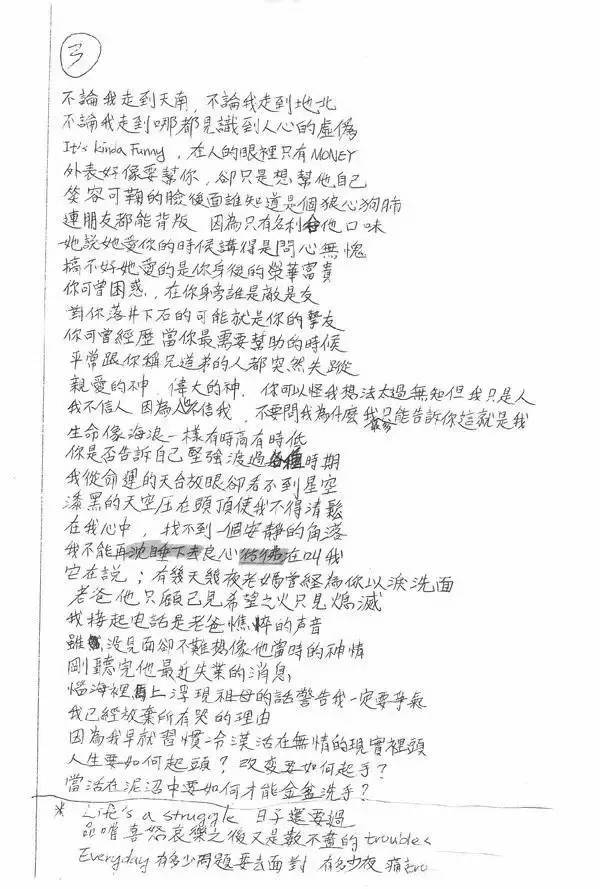 3
不論我走到天南，不論我走到地北
不論我走到哪都見識到人心的虛偽
It's kinda Funny，在人的眼裡只有 MONEY
外表好像要幫你，卻只是想幫他自己
笑容可鞠的臉後面誰知道是個狼心狗肺
連朋友都能背叛 因為只有名利合他口味
她說她愛你的時候講得是問心無愧
搞不好她愛的是你身後的榮華富貴
你可曾困惑，在你身旁誰是敵是友
對你落井下石的可能就是你的摯友
你可曾經歷當你最需要幫助的時候
平常跟你稱兄道弟的人都突然失蹤
親愛的神，偉大的神，你可以怪我想法太過無知但我只是人
我不信人 因為人不信我，不要問我為什麼 我只能告訴你這就是我
生命像海浪一樣有時高有時低
你是否告訴自己堅強渡過各種時期
我從命運的天台放眼卻看不到星空
漆黑的天空压在頭頂使我不得清鬆
在我心中，找不到一個安靜的角落
我不能再沈睡下去良心彷彿在叫我
它在説；有幾天幾夜老媽曾經為你以淚洗面
老爸他只顧己見希望之火只見熄滅
我接起電話是老爸憔悴的声音
雖 没見面卻不難想像他當時的神情
剛聽完他最近失業的消息
惱海裡馬上浮現祖母的話警告我一定要爭氣
我已經放棄所有哭的理由
因為我早就習慣一个漢活在無情的現實裡頭
人生要如何起頭？改变要如何起手？
當活在泥沼中要如何才能金盆洗手？
* Life's a struggle 日子還要過
品嚐喜怒哀樂之後又是數不盡的 troubles
Everyday 有多少問題要去面對 有多少夜 痛